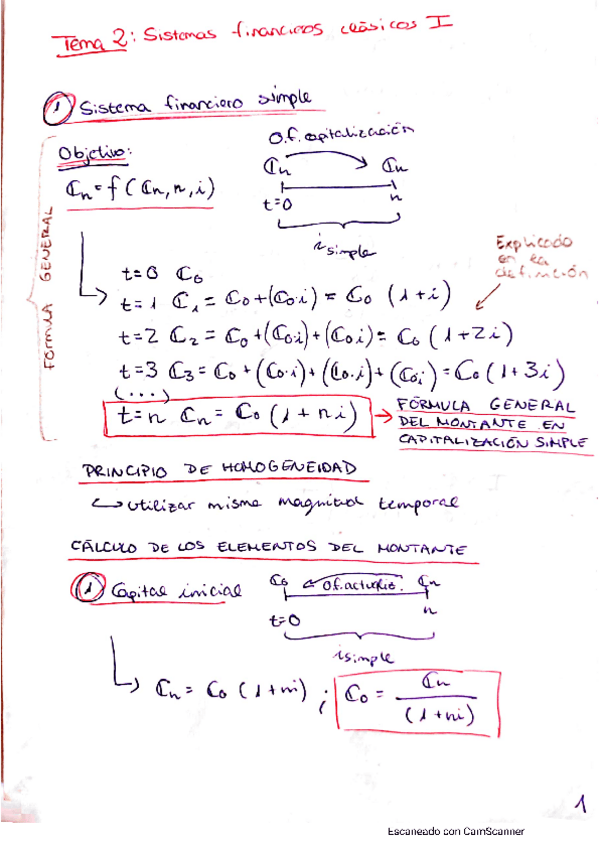 Tema 2: Sistemas financieros clásicos I
1 Sistema financiero simple
FÓRMULA GENERAL
Objetivo:
Cn = f (Cn, n, i)
O.f. capitalización
Cn Cn
t=0 n
i simple
Explicado en la definición
t=0 C0
t=1 C1 = C0+(C0·i) = C0 (1+i)
t=2 C2 = C0+(C0·i)+(C0·i) = C0 (1+2i)
t=3 C3 = C0+(C0·i)+(C0·i)+(C0i) = C0 (1+3i)
(...)
t=n Cn = C0 (1+ni) → FÓRMULA GENERAL
DEL MONTANTE EN
CAPITALIZACIÓN SIMPLE
PRINCIPIO DE HOMOGENEIDAD
↳ utilizar misma magnitud temporal
CÁLCULO DE LOS ELEMENTOS DEL MONTANTE
1 Capital inicial
C0 Of. actualiz. Cn
t=0 n
i simple
Cn = C0 (1+ni) ; C0 = Cn / (1+ni)
1
Escaneado con CamScanner